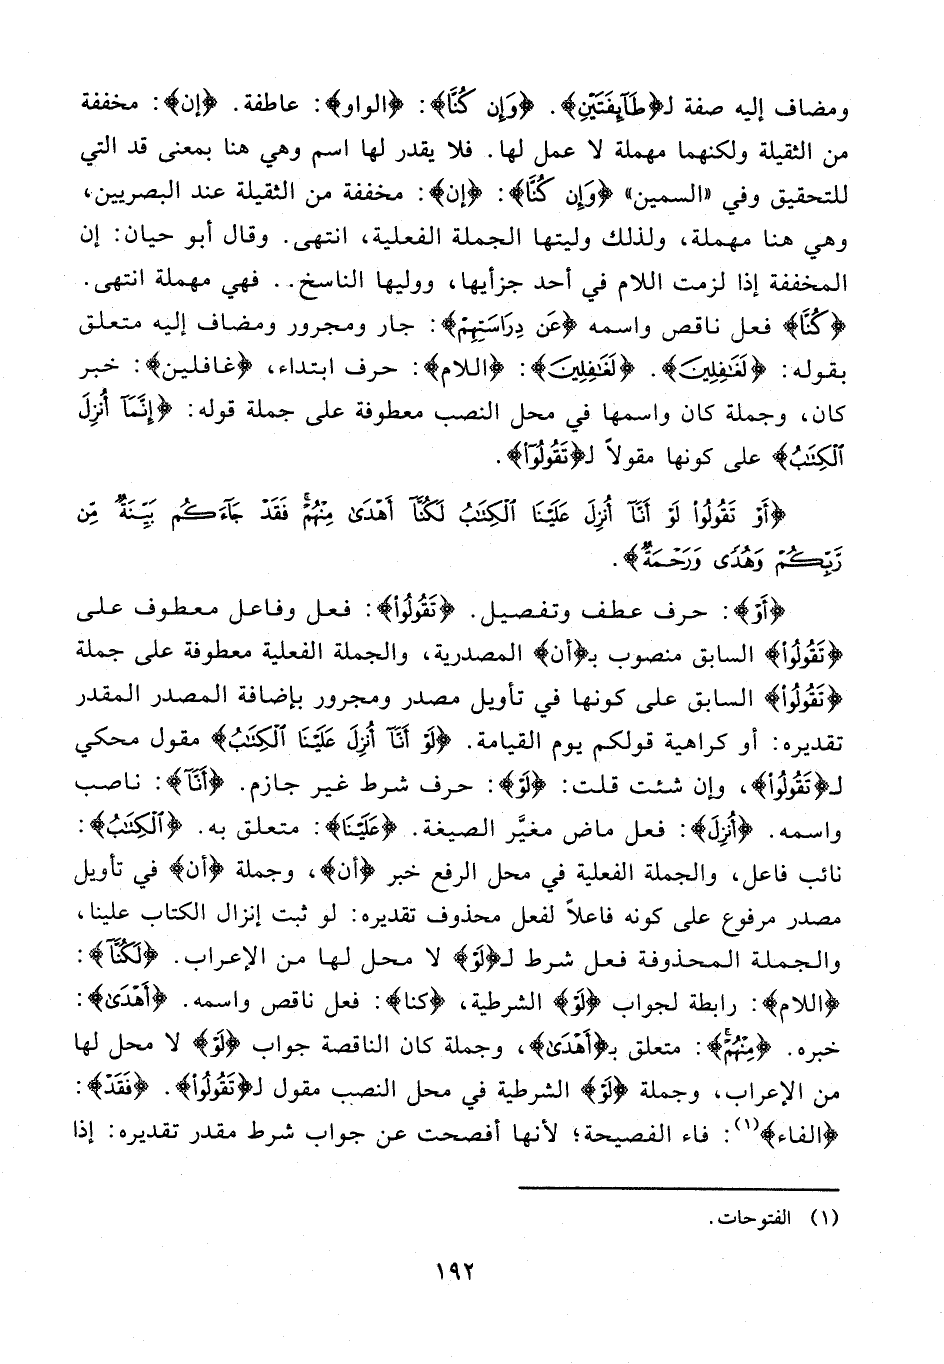 ومضاف إليه صفة لـ﴿طَآئِفَتَيْنِ﴾. ﴿وَإِن كُنَّا﴾: ﴿الواو﴾: عاطفة. ﴿إن﴾: مخففة
من الثقيلة ولكنهما مهملة لا عمل لها. فلا يقدر لها اسم وهي هنا بمعنى قد التي
للتحقيق وفي «السمين» ﴿وَإِن كُنَّا﴾: ﴿إن﴾: مخففة من الثقيلة عند البصريين،
وهي هنا مهملة، ولذلك وليتها الجملة الفعلية، انتهى. وقال أبو حيان: إن
المخففة إذا لزمت اللام في أحد جزأيها، ووليها الناسخ.. فهي مهملة انتهى.
﴿كُنَّا﴾ فعل ناقص واسمه ﴿عَن دِرَاسَتِهِمْ﴾: جار ومجرور ومضاف إليه متعلق
بقوله: ﴿لَغَٰفِلِينَ﴾. ﴿لَغَٰفِلِينَ﴾: ﴿اللام﴾: حرف ابتداء، ﴿غافلين﴾: خبر
كان، وجملة كان واسمها في محل النصب معطوفة على جملة قوله: ﴿إِنَّمَآ أُنزِلَ
ٱلْكِتَٰبُ﴾ على كونها مقولاً لـ﴿تَقُولُوٓا۟﴾.
﴿أَوْ تَقُولُوا۟ لَوْ أَنَّآ أُنزِلَ عَلَيْنَا ٱلْكِتَٰبُ لَكُنَّآ أَهْدَىٰ مِنْهُمْ ۚ فَقَدْ جَآءَكُم بَيِّنَةٌ مِّن
رَّبِّكُمْ وَهُدًى وَرَحْمَةٌ﴾.
﴿أَوْ﴾: حرف عطف وتفصيل. ﴿تَقُولُوا۟﴾: فعل وفاعل معطوف على
﴿تَقُولُوٓا۟﴾ السابق منصوب بـ﴿أن﴾ المصدرية، والجملة الفعلية معطوفة على جملة
﴿تَقُولُوٓا۟﴾ السابق على كونها في تأويل مصدر ومجرور بإضافة المصدر المقدر
تقديره: أو كراهية قولكم يوم القيامة. ﴿لَوْ أَنَّآ أُنزِلَ عَلَيْنَا ٱلْكِتَٰبُ﴾ مقول محكي
لـ﴿تَقُولُوا۟﴾، وإن شئت قلت: ﴿لَوْ﴾: حرف شرط غير جازم. ﴿أَنَّآ﴾: ناصب
واسمه. ﴿أُنزِلَ﴾: فعل ماض مغيَّر الصيغة. ﴿عَلَيْنَا﴾: متعلق به. ﴿ٱلْكِتَٰبُ﴾:
نائب فاعل، والجملة الفعلية في محل الرفع خبر ﴿أن﴾، وجملة ﴿أن﴾ في تأويل
مصدر مرفوع على كونه فاعلاً لفعل محذوف تقديره: لو ثبت إنزال الكتاب علينا،
والجملة المحذوفة فعل شرط لـ﴿لَوْ﴾ لا محل لها من الإعراب. ﴿لَكُنَّآ﴾:
﴿اللام﴾: رابطة لجواب ﴿لَوْ﴾ الشرطية، ﴿كنا﴾: فعل ناقص واسمه. ﴿أَهْدَىٰ﴾:
خبره. ﴿مِنْهُمْ ۚ﴾: متعلق بـ﴿أَهْدَىٰ﴾، وجملة كان الناقصة جواب ﴿لَوْ﴾ لا محل لها
من الإعراب، وجملة ﴿لَوْ﴾ الشرطية في محل النصب مقول لـ﴿تَقُولُوا۟﴾. ﴿فَقَدْ﴾:
﴿الفاء﴾(١): فاء الفصيحة؛ لأنها أفصحت عن جواب شرط مقدر تقديره: إذا
(١) الفتوحات.
١٩٢